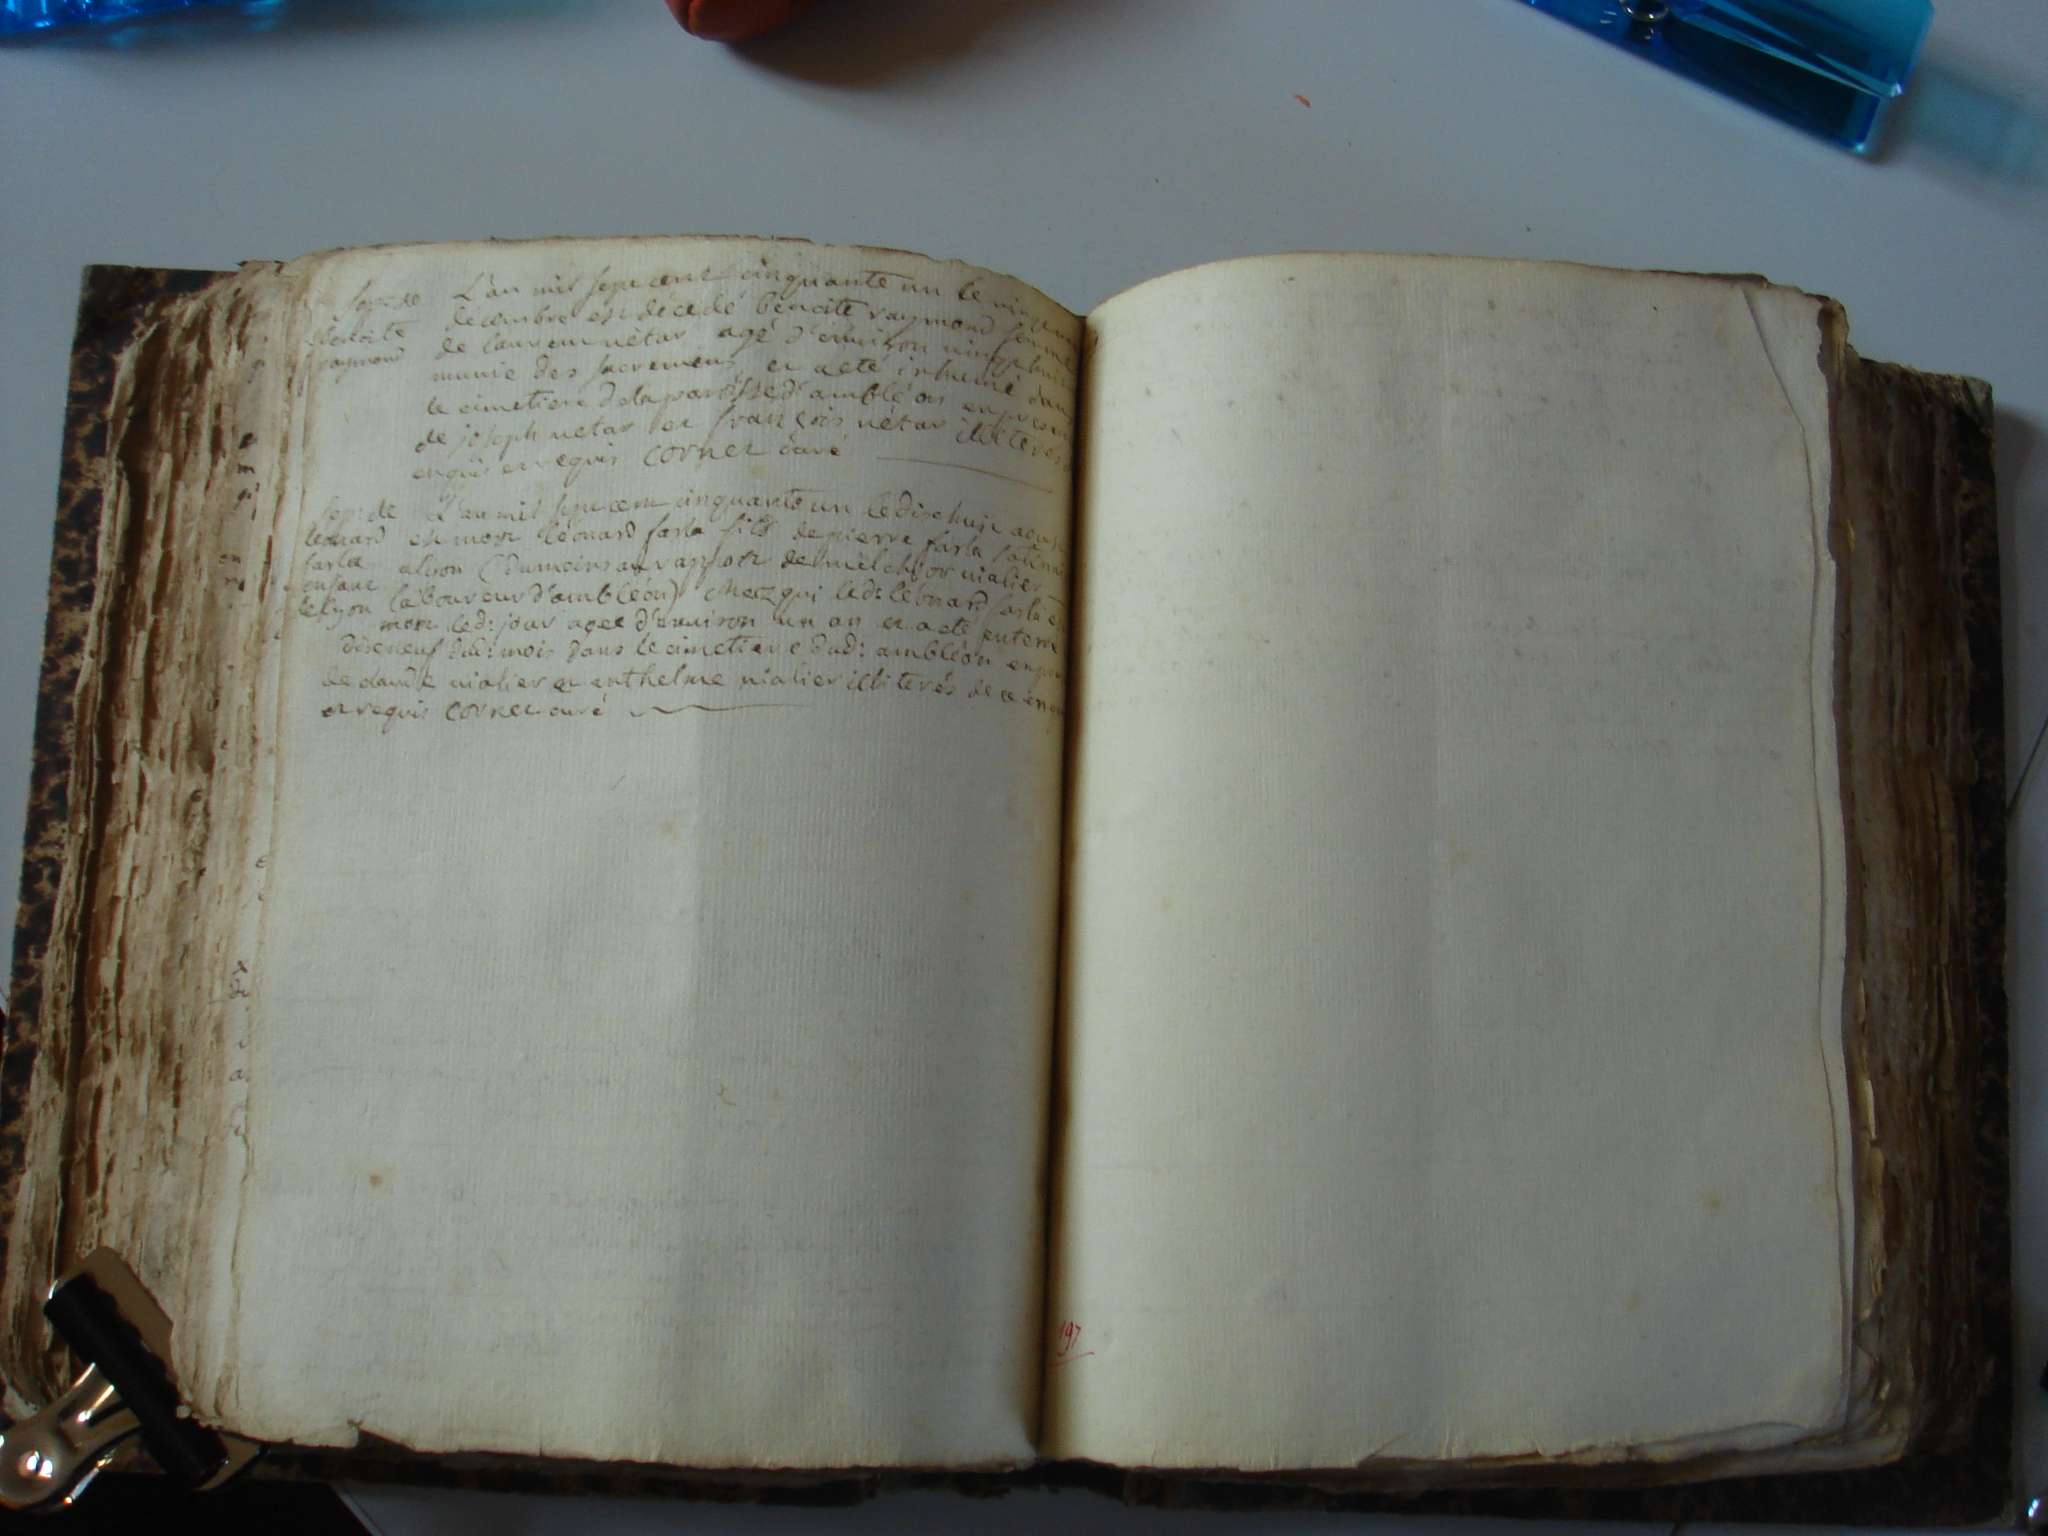 Sepr: de
benoite
raymond
L'an mil sept cent cinquante un le
décembre est décedé benoite raymond femme
de laurem nétar agé d'environ vingt huit
munie des sacremens et a eté inhumé dans
le cimetiere dela paroisse d'ambléon en
de joseph netar et françois nétar
enquis et requis cornet curé
Sepr: de
léonard
farla
enfant
de lyon
L'an mil sept cent cinquante un le dix huit aoust
est mort léonard farla fils de pierre farla
a lyon (du moins au rapport de melchior vialier
laboureur d'ambléon) chez qui led: léonard farla est
mort led: jour agee d'environ un an et a eté enterré
dixneuf dud: mois dans le cimetiere dud: ambléon en
de claude vialier et anthelme vialier illiterés de ce
et requis cornet curé
197